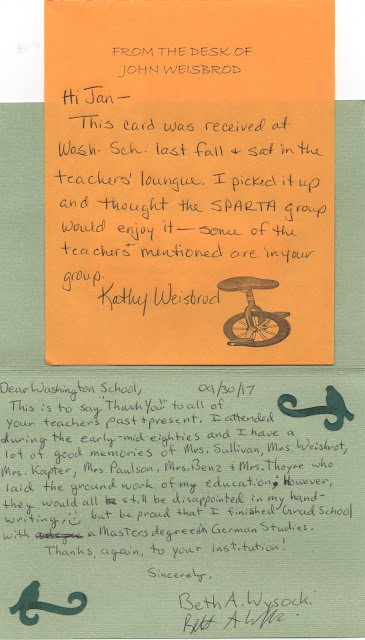 FROM THE DESK OF
JOHN WEISBROD
Hi Jan—
This card was received at
Wash. Sch. last fall & sat in the
teachers' loungue. I picked it up
and thought the SPARTA group
would enjoy it — some of the
teachers mentioned are in your
group.
Kathy Weisbrod
Dear Washington School, 09/30/17
This is to say "Thank You" to all of
your teachers past & present. I attended
during the early-mid eighties and I have a
lot of good memories of Mrs. Sullivan, Mrs. Weisbrot,
Mrs. Kapter, Mrs. Paulson, Mrs. Benz & Mrs. Thoyre who
laid the ground work of my education; however,
they would all still be disappointed in my hand-
writing, but be proud that I finished Grad School
with a Masters degree in German Studies.
Thanks, again, to your institution!
Sincerely,
Beth A. Wysocki